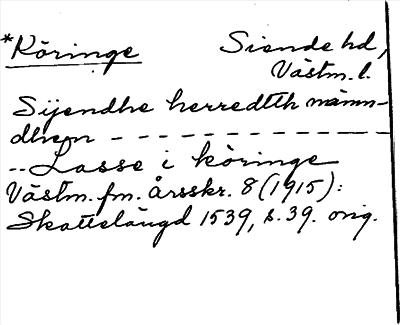 *Köringe Siende hd,
Västm. l.
Sijendhe herredtth nämn-
dhem - - - - - - - - - - - -
-- Lasse i köringe
Västm. fm. årsskr. 8 (1915):
Skattelängd 1539, s. 39. orig.